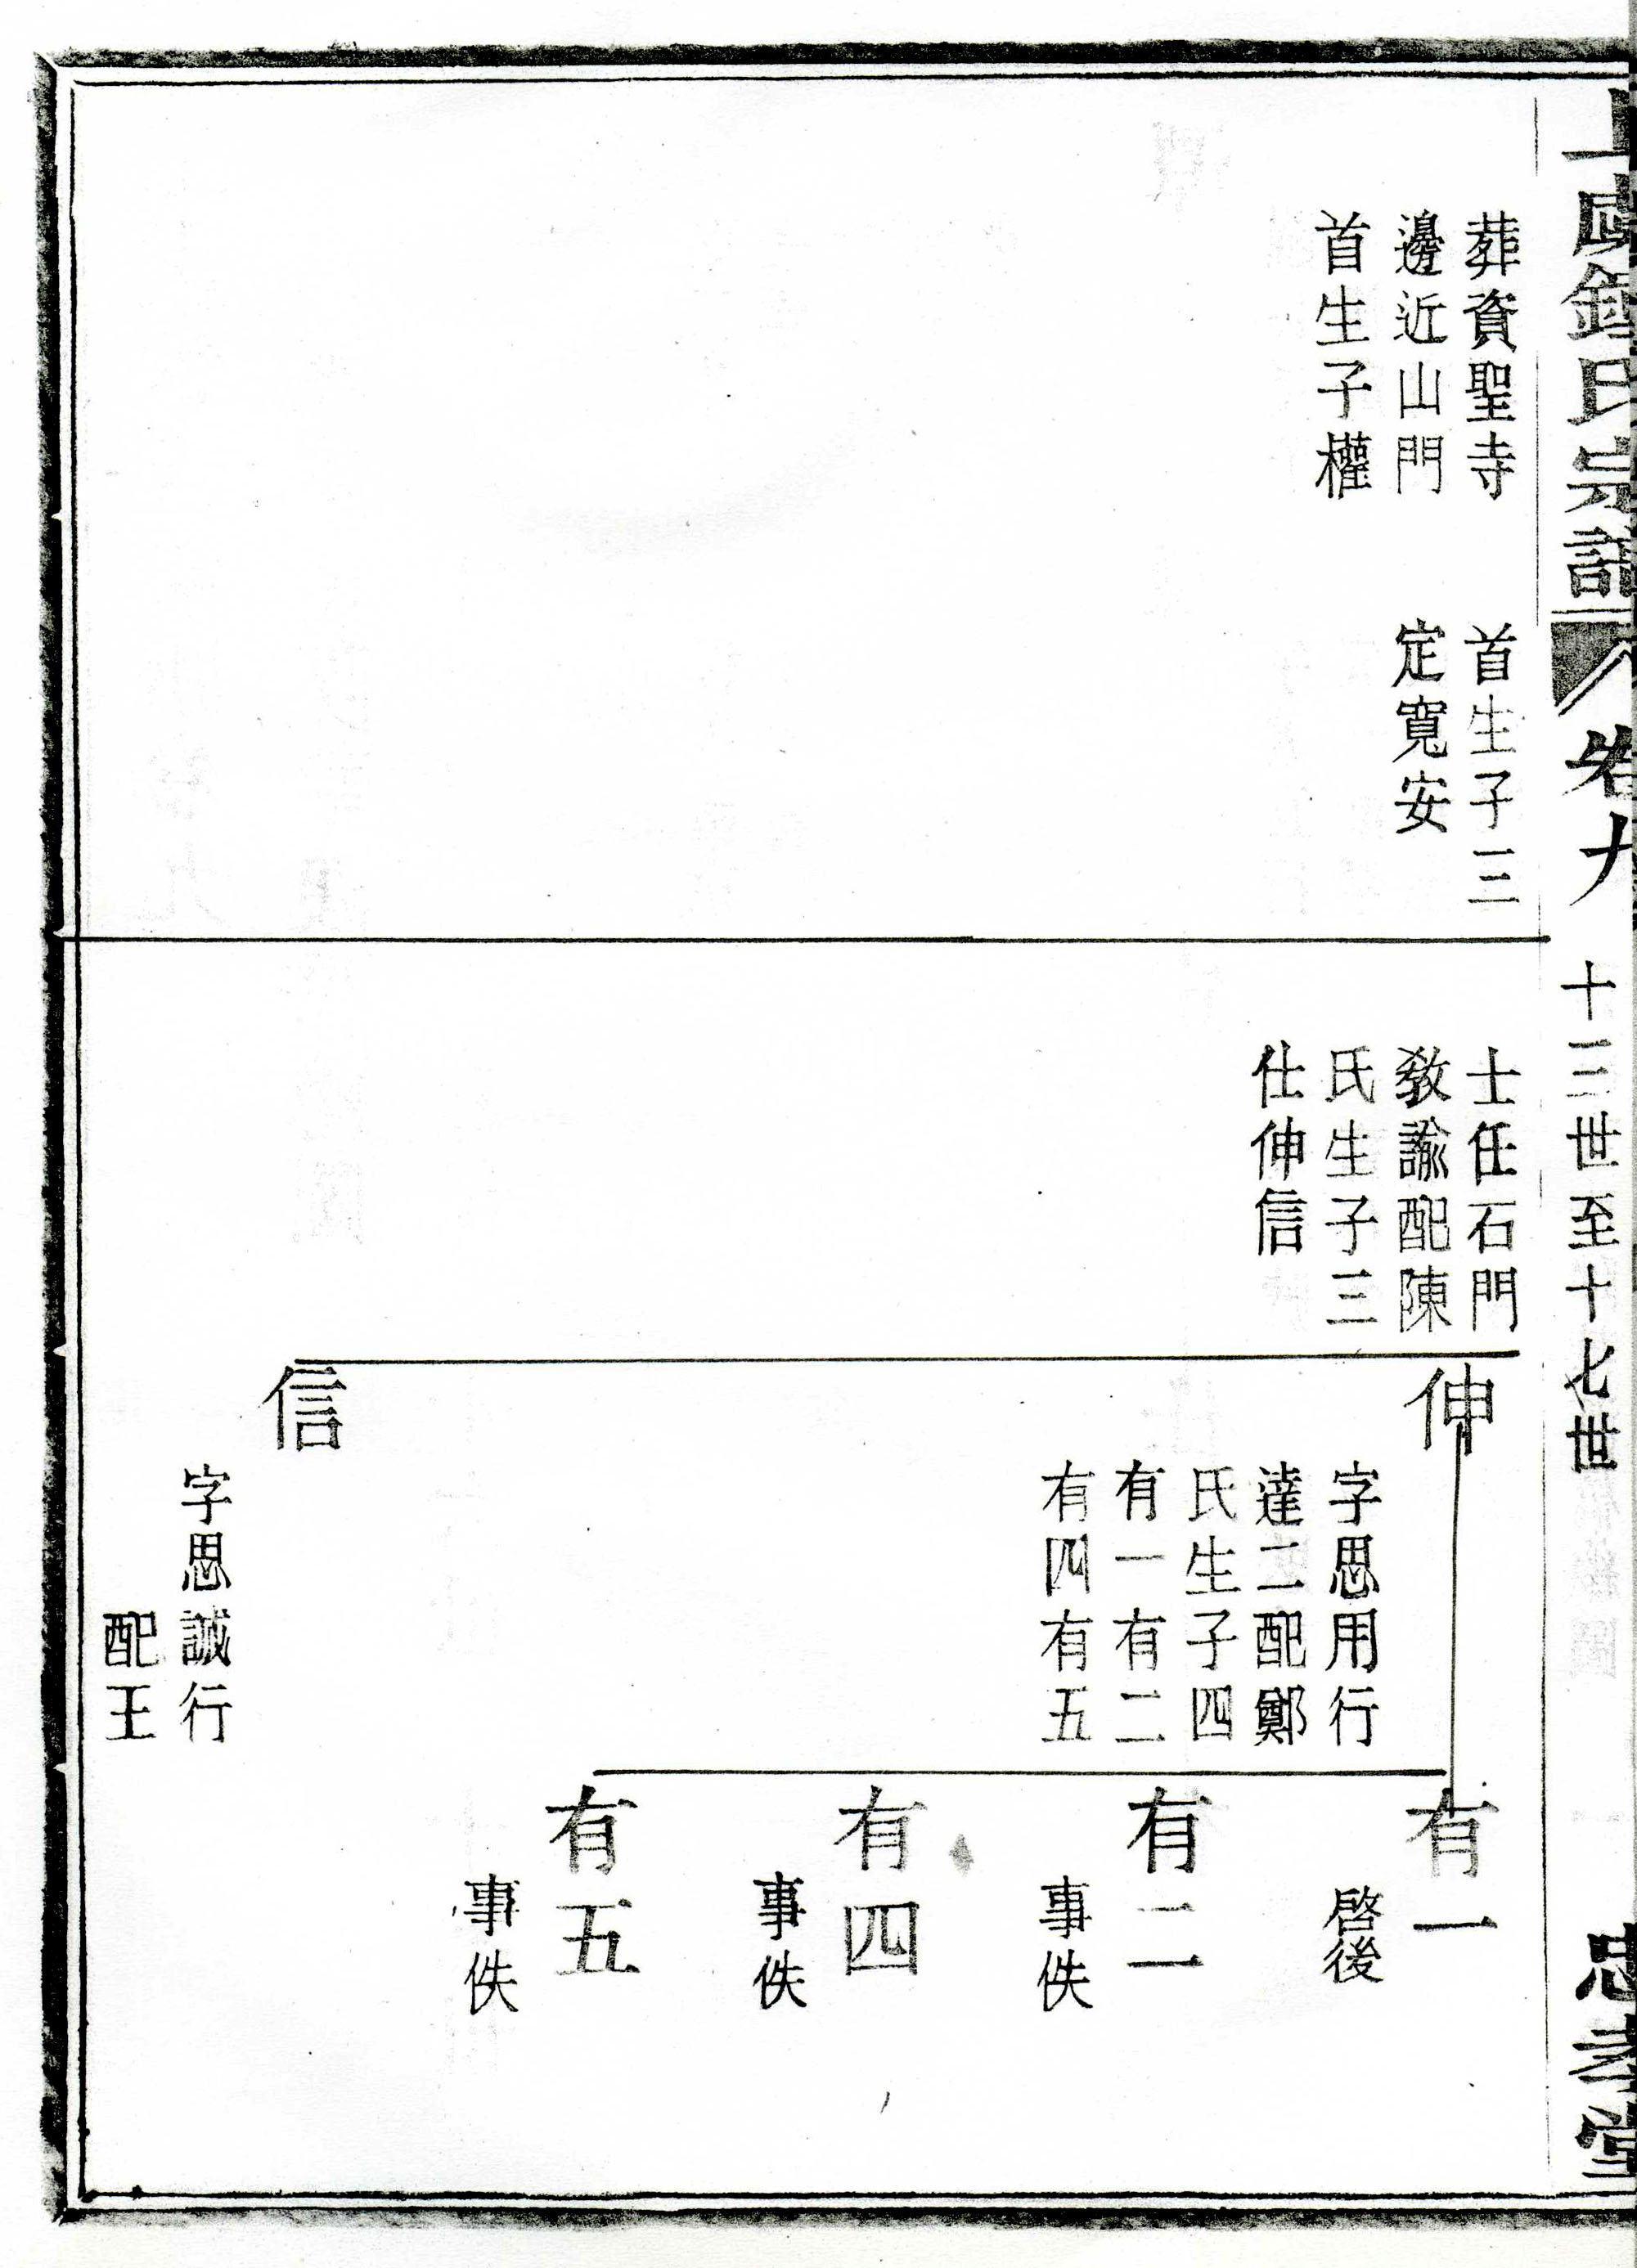 氏宗譜
卷九
十三世至十七世
忠孝堂
葬資聖寺
邊近山門
首生子權
首生子三
定寬安
士任石門
教諭配陳
氏生子三
仕伸信
伸
字思用行
達二配鄭
氏生子四
有一有二
有四有五
信
字思誠行
配王
有一
啓後
有二
事佚
有四
事佚
有五
事佚